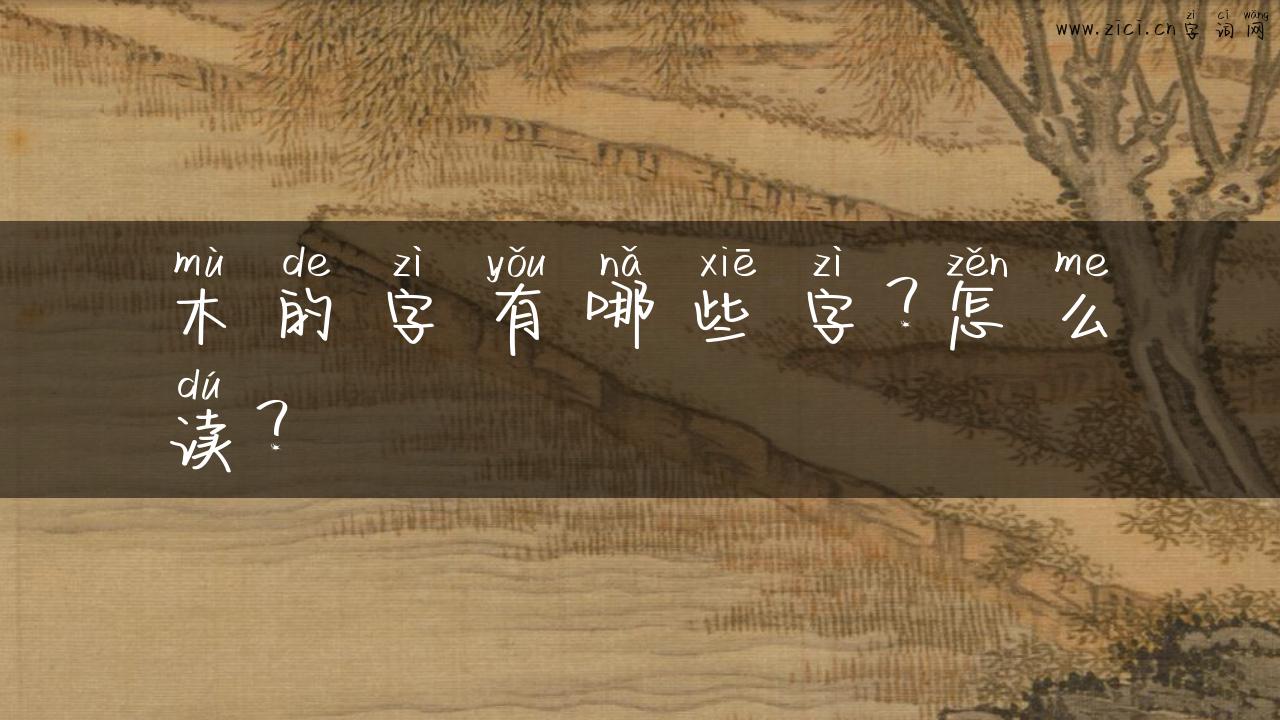 zì cí wǎng
www.zici.cn字词网
mù de zì yǒu nǎ xiē zì zěn me
木的字有哪些字?怎么
dú
读?